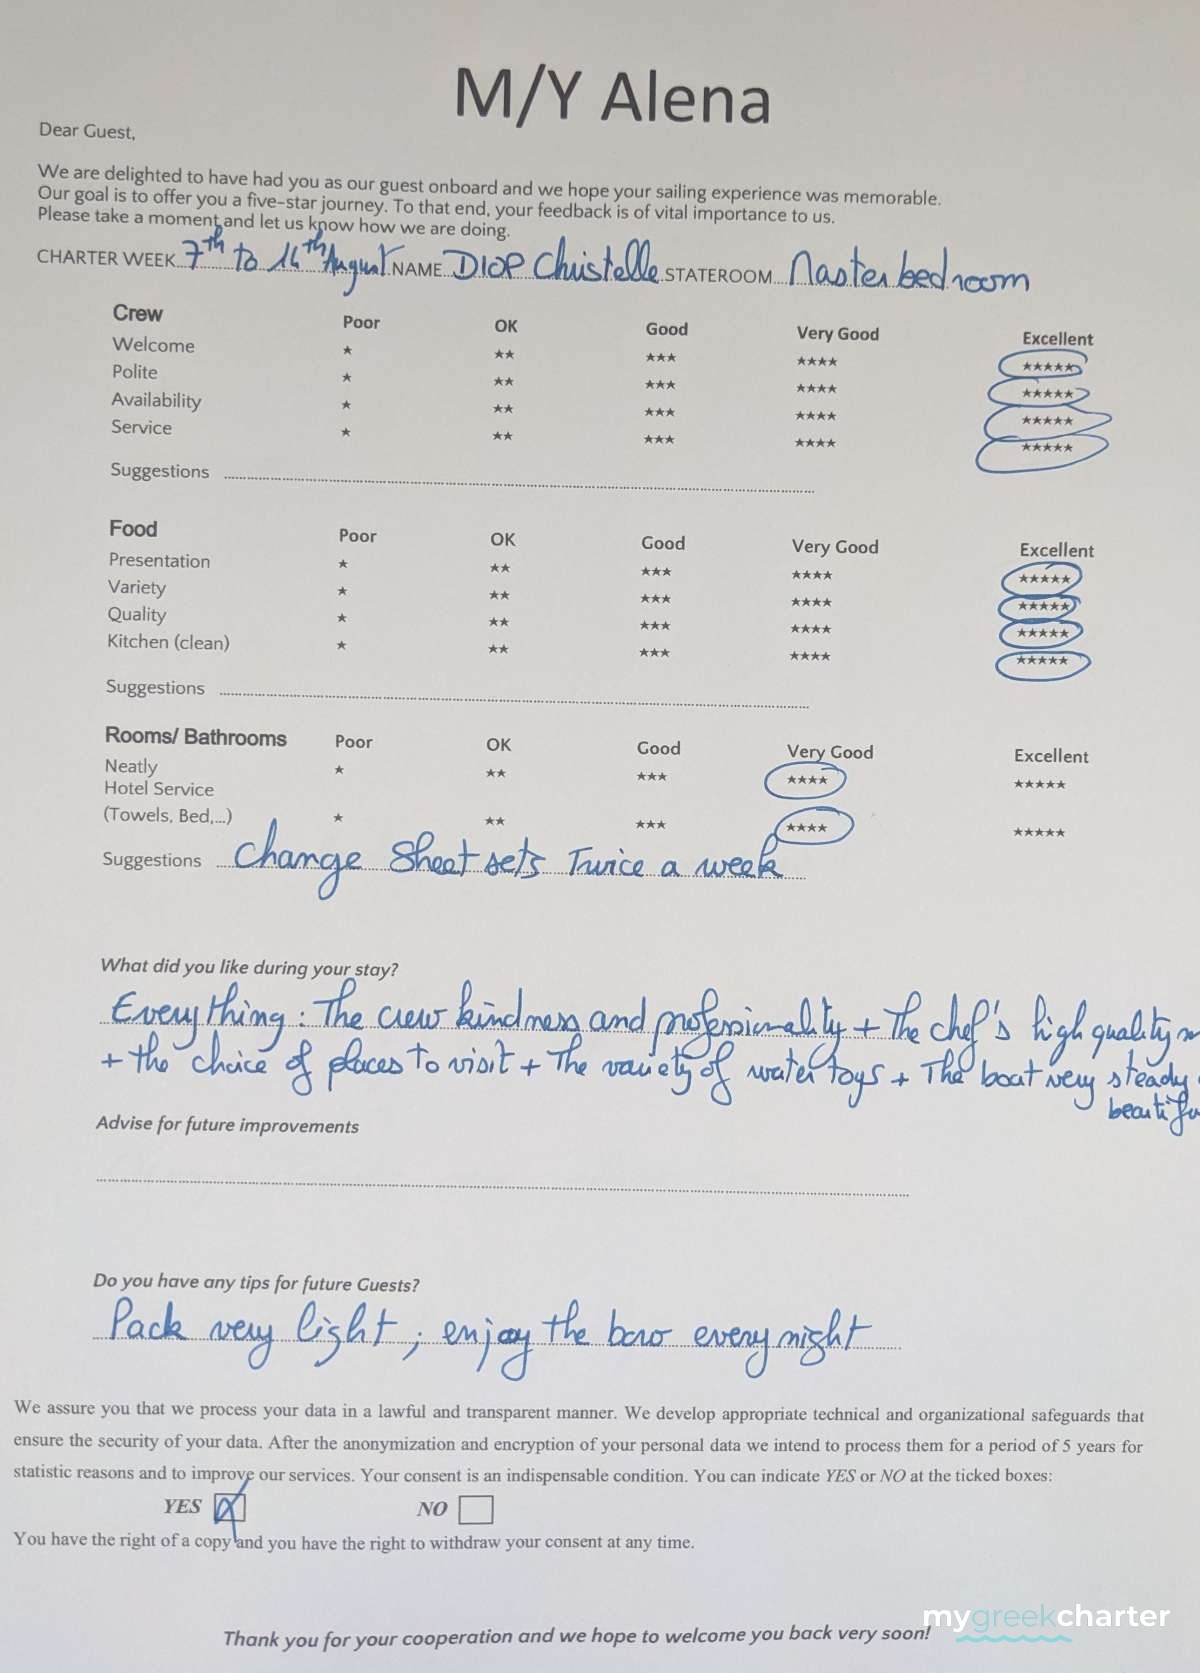 M/Y Alena
Dear Guest,
We are delighted to have had you as our guest onboard and we hope your sailing experience was memorable.
Our goal is to offer you a five-star journey. To that end, your feedback is of vital importance to us.
Please take a moment and let us know how we are doing.
CHARTER WEEK 7th to 14th August NAME DIOP Christelle STATEROOM Master bedroom
Crew Poor OK Good Very Good Excellent
Welcome ★ ★★ ★★★ ★★★★ ★★★★★
Polite ★ ★★ ★★★ ★★★★ ★★★★★
Availability ★ ★★ ★★★ ★★★★ ★★★★★
Service ★ ★★ ★★★ ★★★★ ★★★★★
Suggestions
Food Poor OK Good Very Good Excellent
Presentation ★ ★★ ★★★ ★★★★ ★★★★★
Variety ★ ★★ ★★★ ★★★★ ★★★★★
Quality ★ ★★ ★★★ ★★★★ ★★★★★
Kitchen (clean) ★ ★★ ★★★ ★★★★ ★★★★★
Suggestions
Rooms/ Bathrooms Poor OK Good Very Good Excellent
Neatly ★ ★★ ★★★ ★★★★ ★★★★★
Hotel Service
(Towels, Bed,...) ★ ★★ ★★★ ★★★★ ★★★★★
Suggestions Change Sheet sets Twice a week
What did you like during your stay?
Everything: The crew kindness and professionality + the chef's high quality
+ the choice of places to visit + The variety of water toys + The boat very steady
Advise for future improvements
Do you have any tips for future Guests?
Pack very light; enjoy the bow every night
We assure you that we process your data in a lawful and transparent manner. We develop appropriate technical and organizational safeguards that
ensure the security of your data. After the anonymization and encryption of your personal data we intend to process them for a period of 5 years for
statistic reasons and to improve our services. Your consent is an indispensable condition. You can indicate YES or NO at the ticked boxes:
YES NO
You have the right of a copy and you have the right to withdraw your consent at any time.
mygreekcharter
Thank you for your cooperation and we hope to welcome you back very soon!